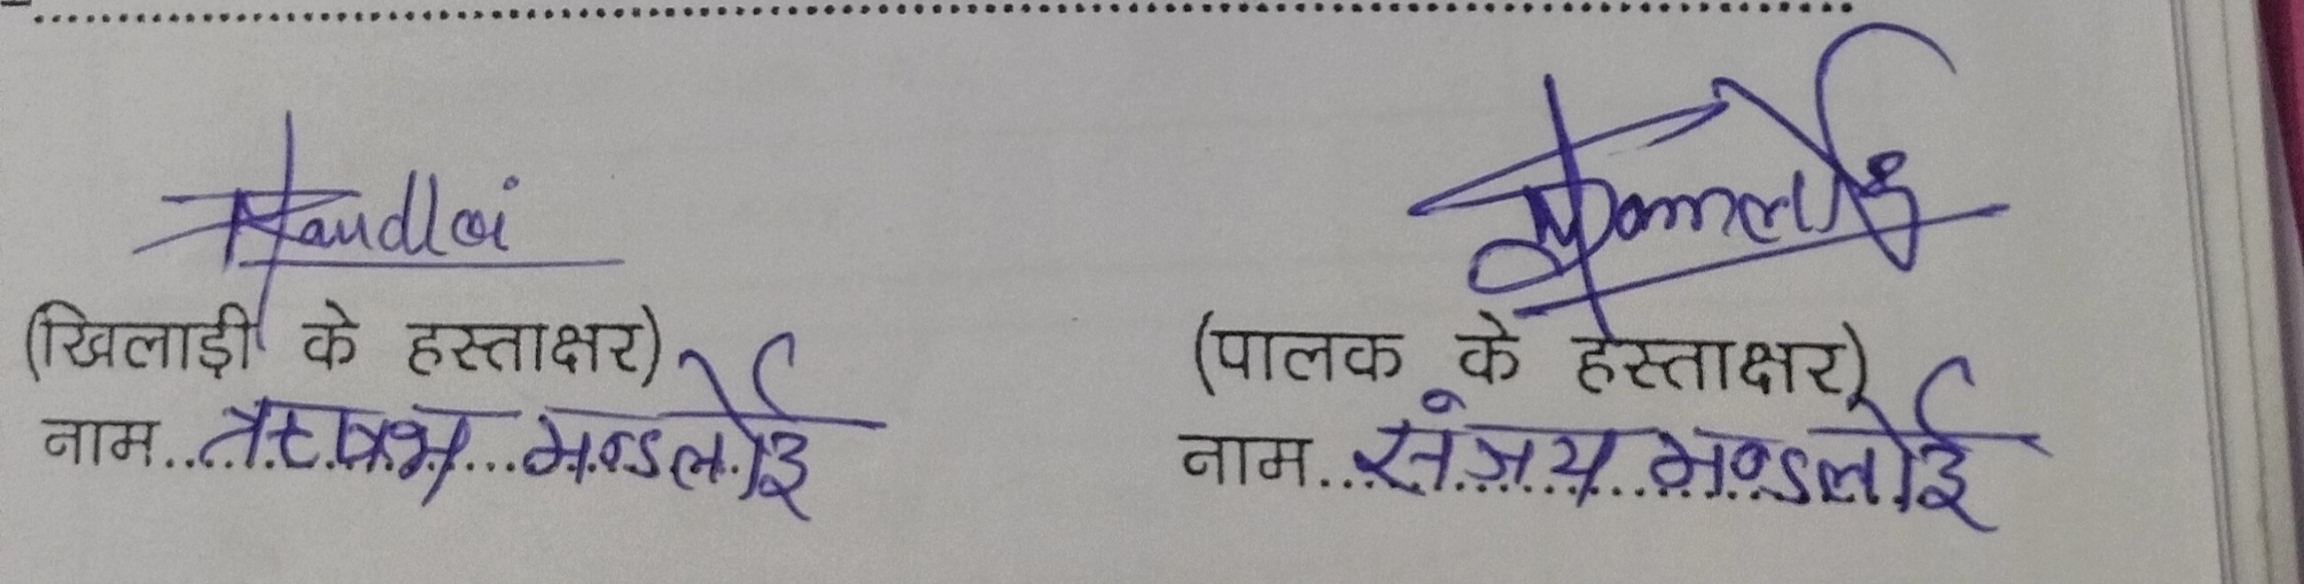 Mandloi
(खिलाड़ी के हस्ताक्षर) (पालक के हस्ताक्षर)
नाम ऋषभ मण्डलोई नाम संजय मण्डलोई